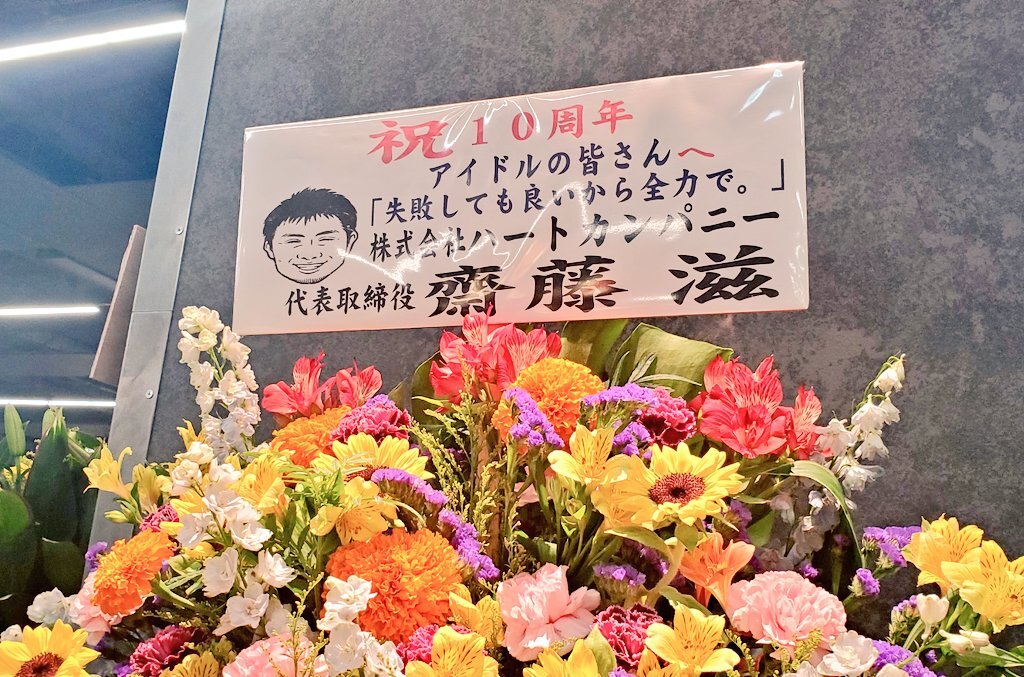 祝10周年
アイドルの皆さんへ
「失敗しても良いから全力で。」
株式会社ハートカンパニー
代表取締役 齋藤 滋